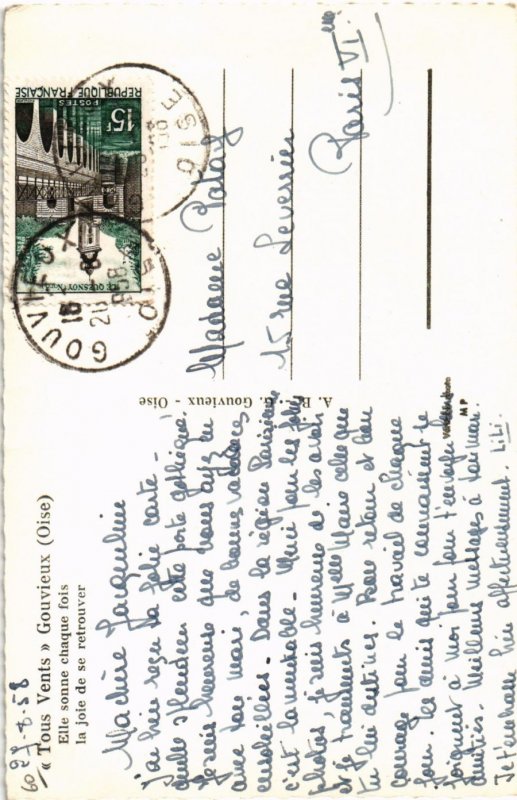 27-8-58
« Tous Vents » Gouvieux (Oise)
Elle sonne chaque fois
la joie de se retrouver
Ma chère Jacqueline
j'ai bien reçu ta jolie carte -
quelle splendeur cette porte gothique!
Je suis heureuse que vous ayez eu
avec ton mari, de bonnes vacances
ensoleillées. Dans la région Parisienne
c'est lamentable - Merci pour les jolies
photos, je suis heureuse de les avoir
et je transmets à Mme Marie celle que
tu lui destines. Bon retour et bon
courage pour le travail de chaque
jour. Les amis qui te connaissent se
joignent à moi pour t'envoyer
amitiés. Meilleurs messages à ton mari.
Je t'embrasse bien affectueusement. Lili.
A. B. - G. Gouvieux - Oise
MP
Madame Palay
15 rue Leverrier
Paris VIème
RÉPUBLIQUE FRANÇAISE
POSTES
15F
LE QUESNOY (Nord)
GOUVIEUX OISE
18 H
28 - 8
1958
OISE